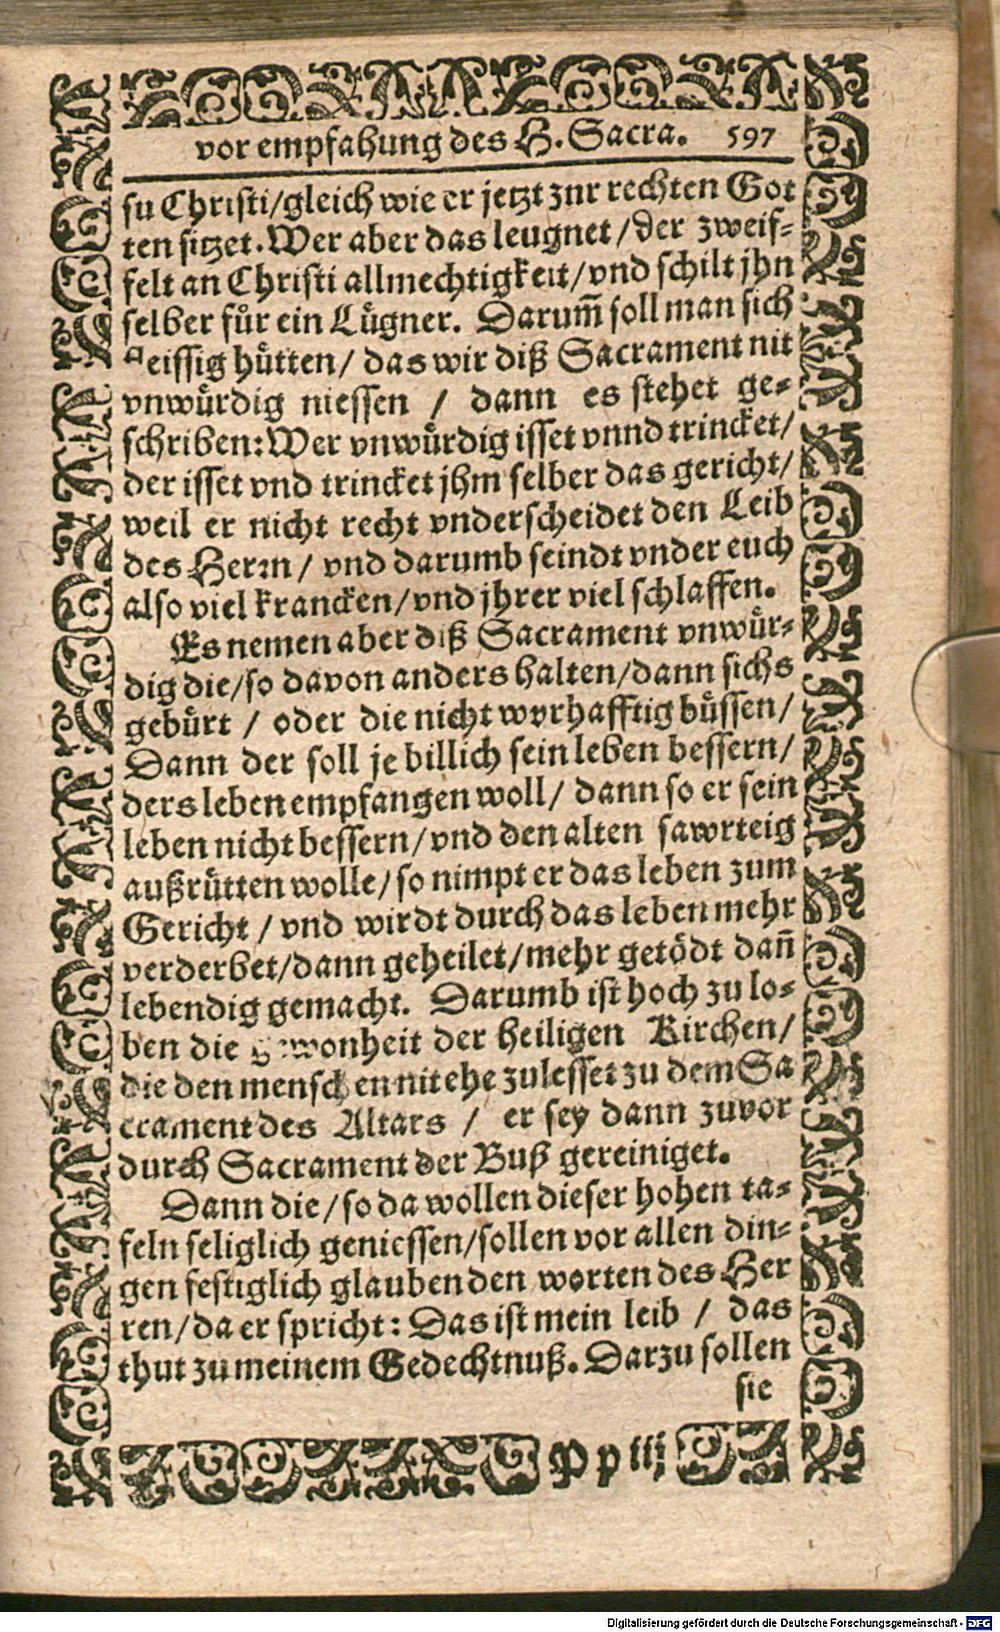 vor empfahung des H. Sacra. 597
su Christi/gleich wie er jetzt znr rechten Got
ten sitzet. Wer aber das leugnet/der zweif-
felt an Christi allmechtigkeit/vnd schilt jhn
selber für ein Lügner. Darum̄ soll man sich
eissig hütten/ das wir diß Sacrament nit
vnwürdig niessen / dann es stehet ge-
schriben: Wer vnwürdig isset vnnd trincket/
der isset vnd trincket jhm selber das gericht/
weil er nicht recht vnderscheidet den Leib
des Herrn / vnd darumb seindt vnder euch
also viel krancken/vnd jhrer viel schlaffen.
Es nemen aber diß Sacrament vnwür-
dig die/so davon anders halten/dann sichs
gebürt / oder die nicht worhafftig büssen/
Dann der soll je billich sein leben bessern/
ders leben empfangen woll/ dann so er sein
leben nicht bessern/vnd den alten sawrteig
außrütten wolle/so nimpt er das leben zum
Gericht / vnd wirdt durch das leben mehr
verderbet/dann geheilet/mehr getödt dan̄
lebendig gemacht. Darumb ist hoch zu lo-
ben die gewonheit der heiligen Kirchen/
die den menschen nit ehe zulesset zu dem Sa
crament des Altars / er sey dann zuvor
durch Sacrament der Buß gereiniget.
Dann die/so da wollen dieser hohen ta-
feln seliglich geniessen/sollen vor allen din-
gen festiglich glauben den worten des Her
ren/da er spricht: Das ist mein leib / das
thut zu meinem Gedechtnuß. Darzu sollen
sie
Pp iij
Digitalisierung gefördert durch die Deutsche Forschungsgemeinschaft - DFG